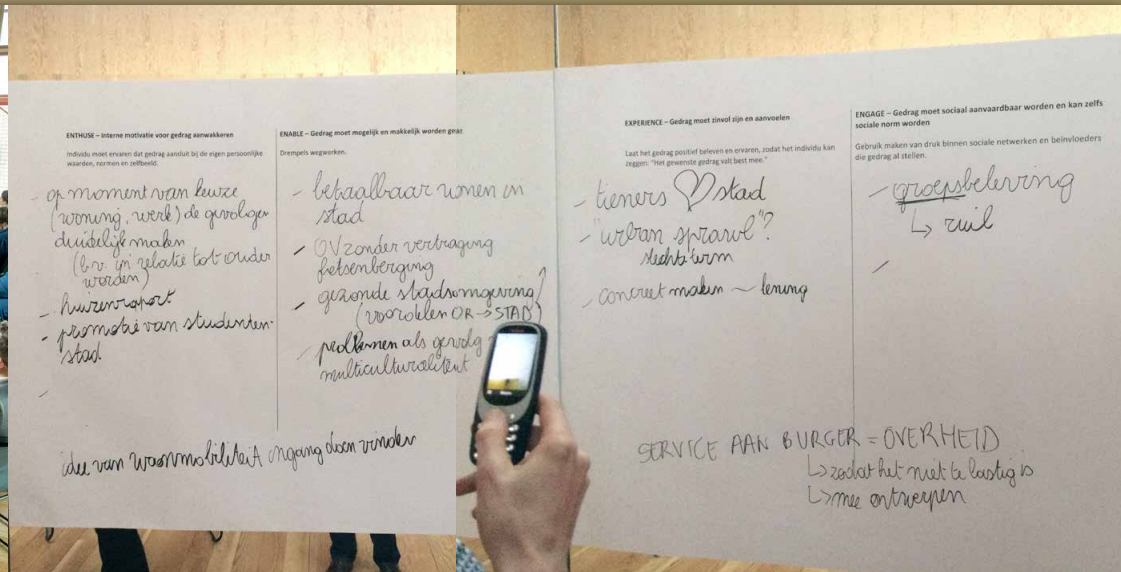 ENTHUSE – Interne motivatie voor gedrag aanwakkeren
Individu moet ervaren dat gedrag aansluit bij de eigen persoonlijke
waarden, normen en zelfbeeld.
- op moment van keuze
(woning, werk) de gevolgen
duidelijk maken
(b.v. in relatie tot ouder
worden)
- huizenrapport
- promotie van studenten-
stad
-
ENABLE – Gedrag moet mogelijk en makkelijk worden
Drempels wegwerken.
- betaalbaar wonen in
stad
- OV zonder vertraging
fietsenberging
- gezonde stadsomgeving
(voordelen OR → STAD)
- problemen als gevolg
multiculturaliteit
idee van woonmobiliteit ingang doen vinden
EXPERIENCE – Gedrag moet zinvol zijn en aanvoelen
Laat het gedrag positief beleven en ervaren, zodat het individu kan
zeggen: "Het gewenste gedrag valt best mee."
- tieners ♡ stad
- "urban sprawl"?
slechte term
- concreet maken ~
ENGAGE – Gedrag moet sociaal aanvaardbaar worden en kan zelfs
sociale norm worden
Gebruik maken van druk binnen sociale netwerken en beïnvloeders
die gedrag al stellen.
- groepsbeleving
↳ ruil
-
SERVICE AAN BURGER = OVERHEID
↳ zodat het niet te lastig is
↳ mee ontwerpen